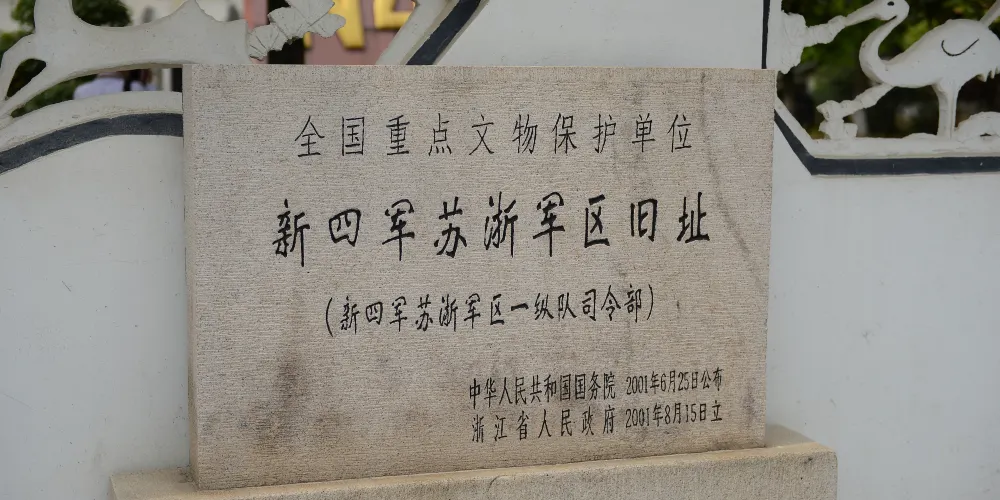 全国重点文物保护单位
新四军苏浙军区旧址
（新四军苏浙军区一纵队司令部）
中华人民共和国国务院 2001年6月25日公布
浙江省人民政府 2001年8月15日立